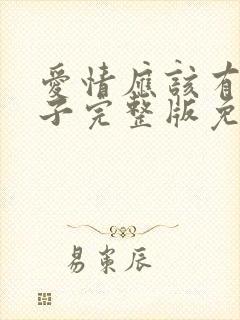 愛情應該有
子完整版免
易岽辰